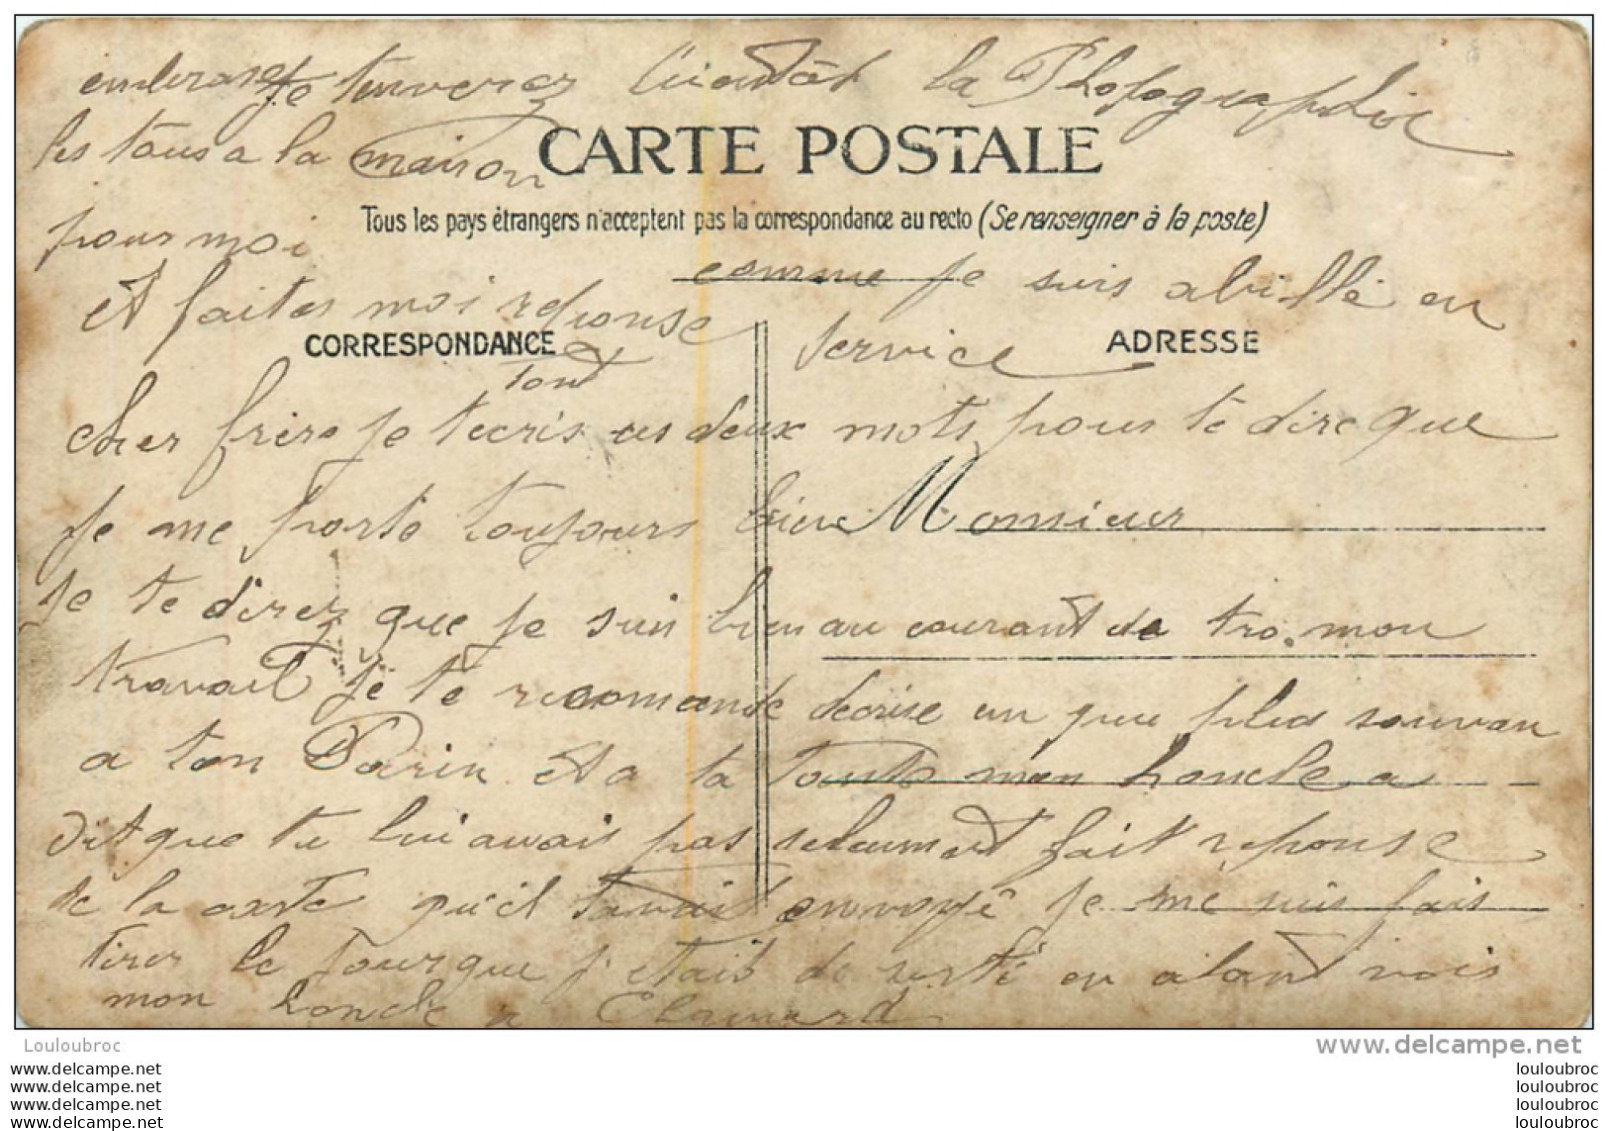 embrase Je tenverez bientôt la Photographie
les tous a la maison
CARTE POSTALE
pour moi
Tous les pays étrangers n'acceptent pas la correspondance au recto (Se renseigner à la poste)
comme je suis abillé en
Et faites moi reponse
service
CORRESPONDANCE
ADRESSE
Tont
cher frère je tecris ces deux mots pour te dire que
je me porte toujours bien Monsieur
je te direz que je suis bien au courant de mon
travail je te recomande décrire un peu plus souvan
a ton Parin et a ta Tante mon honcle a
dit que tu lui avais pas seleument fait reponse
de la carte qu'il tavait envoyé je me suis fais
tirer le jour que j'etais de sorti en alant vois
mon honcle a
Louloubroc
www.delcampe.net
www.delcampe.net
louloubroc
www.delcampe.net
louloubroc
www.delcampe.net
louloubroc
www.delcampe.net
louloubroc